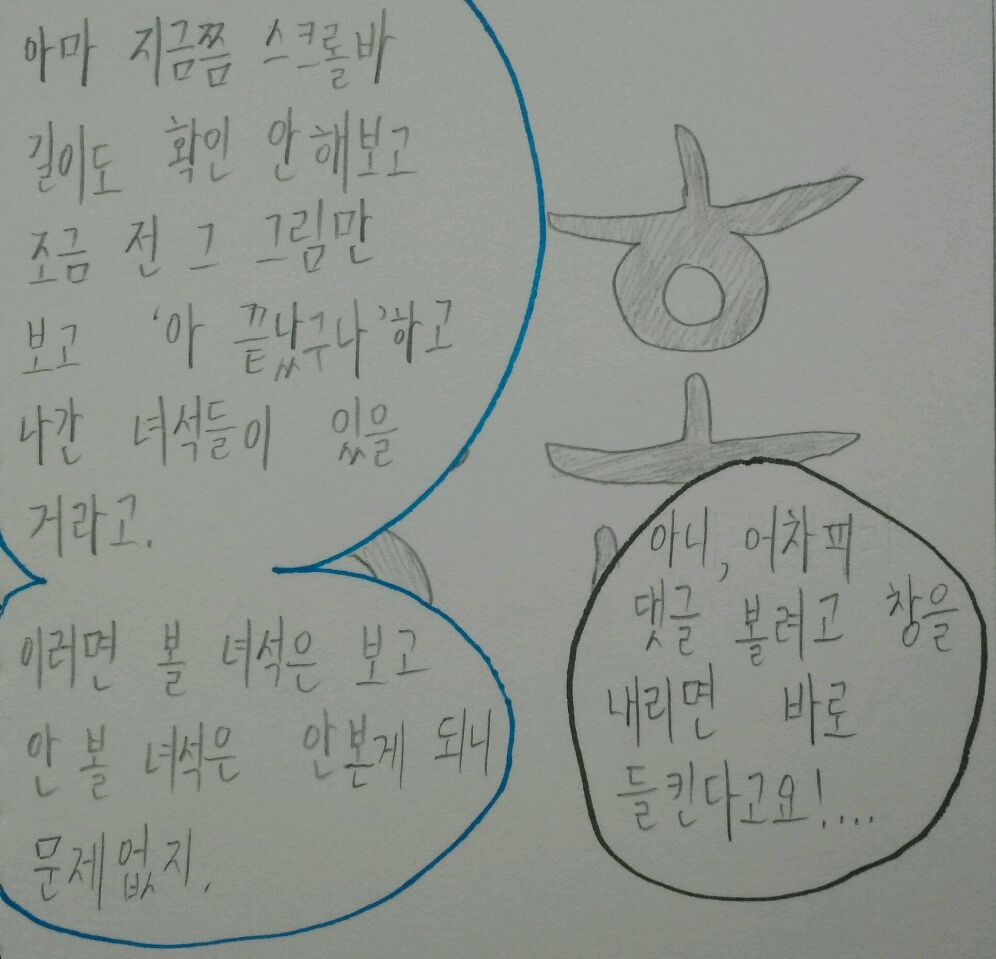 아마 지금쯤 스크롤바
길이도 확인 안해보고
조금 전 그 그림만
보고 '아 끝났구나'하고
나간 녀석들이 있을
거라고.
이러면 볼 녀석은 보고
안 볼 녀석은 안본게 되니
문제없지.
아니, 어차피
댓글 볼려고 창을
내리면 바로
들킨다고요!....